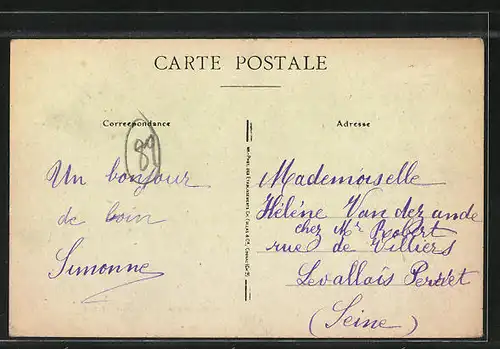 CARTE POSTALE
Correspondance
Adresse
89
Un bonjour
de loin
Simonne
Mademoiselle
Hélène Van dez ande
chez Mr Robert
rue de Villiers
Levallois Perret
(Seine)